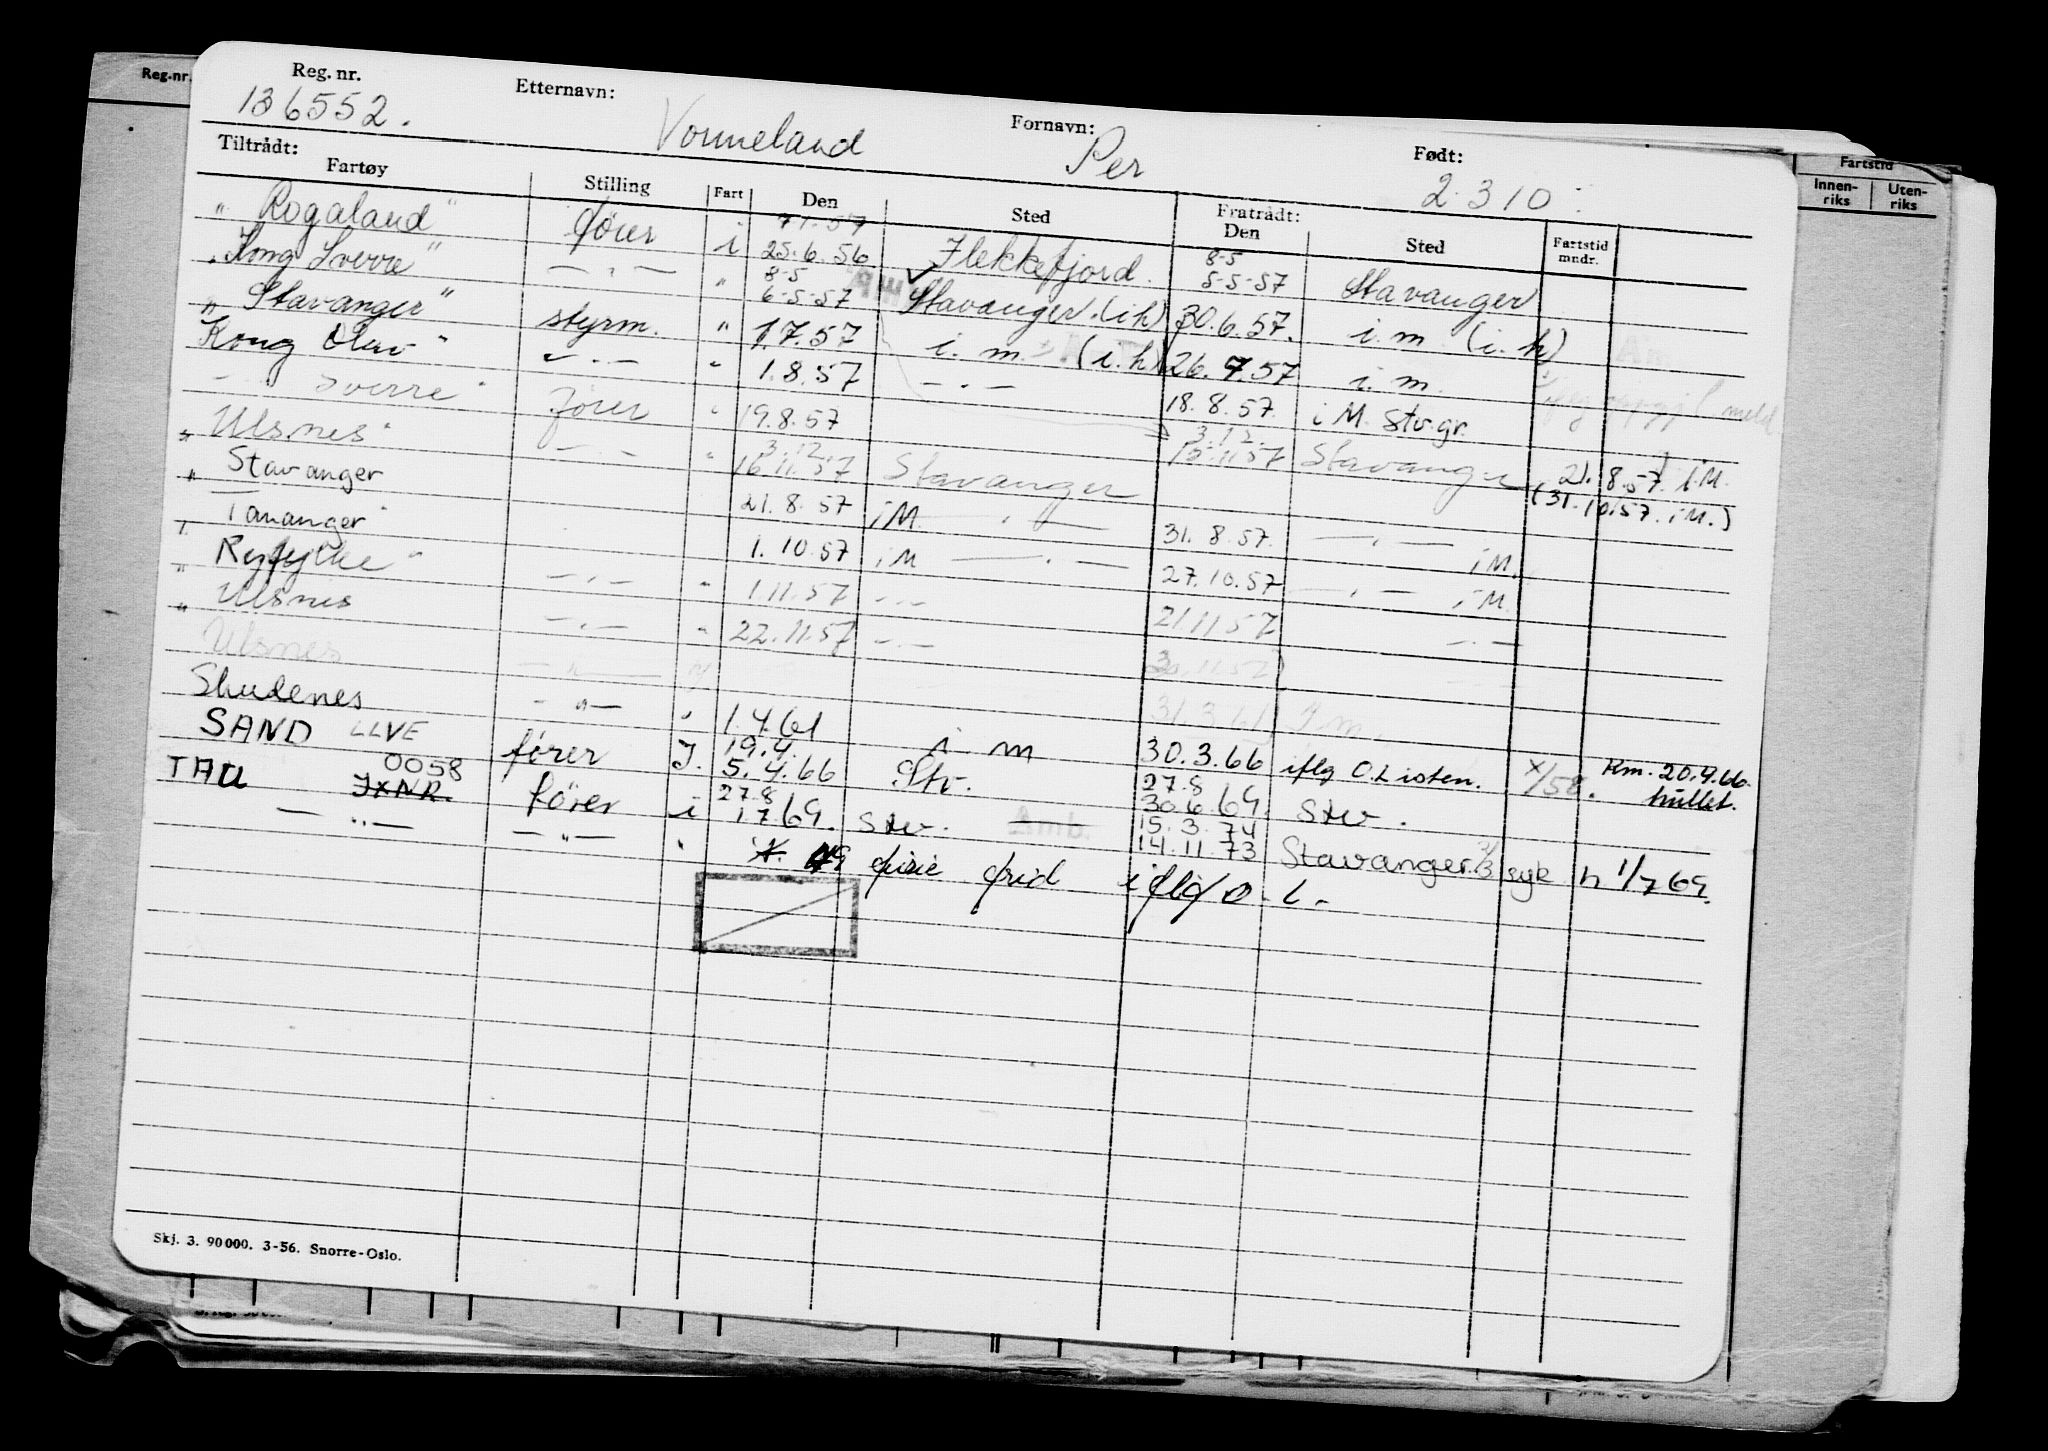 Reg.nr.
Reg. nr. Etternavn: Fornavn: Født:
136552. Vormeland Per 2.3 10
Tiltrådt: Fratrådt: Fartstid
Fartøy Stilling Fart Den Sted Den Sted Fartstid mndr. Innenriks Utenriks
7 1. 57 8-5
"Rogaland" fører i 25.6.56 Flekkefjord. 5-5-57 Stavanger
8-5
"Kong Sverre" — . — " 6-5-57 Stavanger. (i h) 30.6.57. i. m (i. h)
"Stavanger" styrm. " 1.7.57 i. m. (i. h) 26.7.57 i. m.
Kong Olav " " . — " 1.8.57 — . — 18.8.57. i M. Stv.gr.
— Sverre " fører " 19.8.57 3.12.
3.12.
" Ulsnes " — . — " 16.11.57 Stavanger 15.11.57 Stavanger 21.8.57. i.M.
" Stavanger 21.8.57 i M. — . — 31.8.57. — . — i M. (31.10.57. i M.)
" Tananger " 1.10.57 i M — . — 27.10.57 — . — i M.
" Ryfylke " — . — " 1.11.57 — . — 21.11.57 — . —
" Ulsnes — . — " 22.11.57 — . — 30.11.57
Ulsnes — " — 31.3.61 i m.
Skudenes — " — " 1.4.61 i m 30.3.66 iflg O.Listen. x/58. Rm. 20.4.66 hullet.
19.4. 27.8
SAND LLVE fører I. 5.4.66 Stv. 30.6.69. Stv.
0058 27.8 15.3.74
TAU JXNR. fører i 1.7.69. Stv. Amb. 14.11.73 Stavanger syk h 1/7 69.
— " — — " — " frid iflg O.L.
Skj. 3. 90 000. 3-56. Snorre-Oslo.